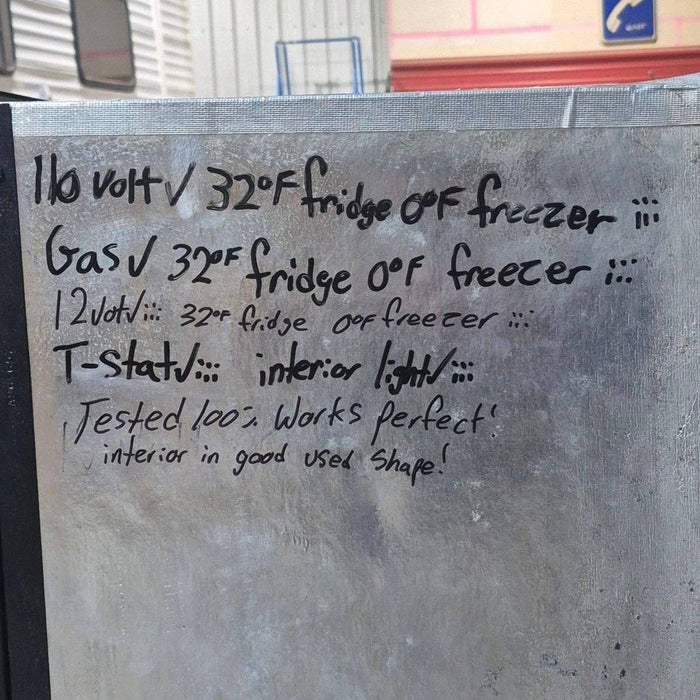 110 volt✓ 32°F fridge 0°F freezer :::
Gas✓ 32°F fridge 0°F freezer :::
12volt✓::: 32°F fridge 0°F freezer :::
T-Stat✓::: interior light✓:::
Tested 100% Works perfect!
interior in good used Shape!